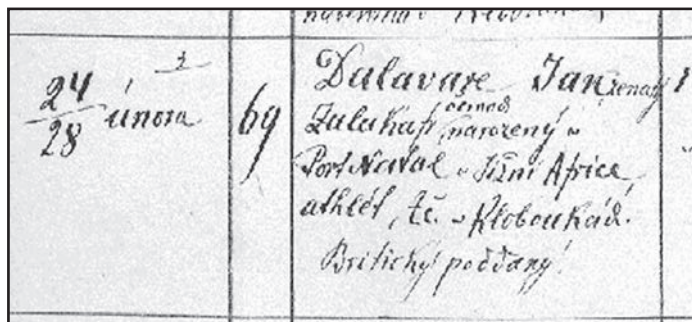 3
24
28 února
69
Dalavare Jan, ženatý
Zulukafr, narozený v
Port Natal v Jižní Africe,
athlét, t.č. v Kloboukách.
Britický poddaný.